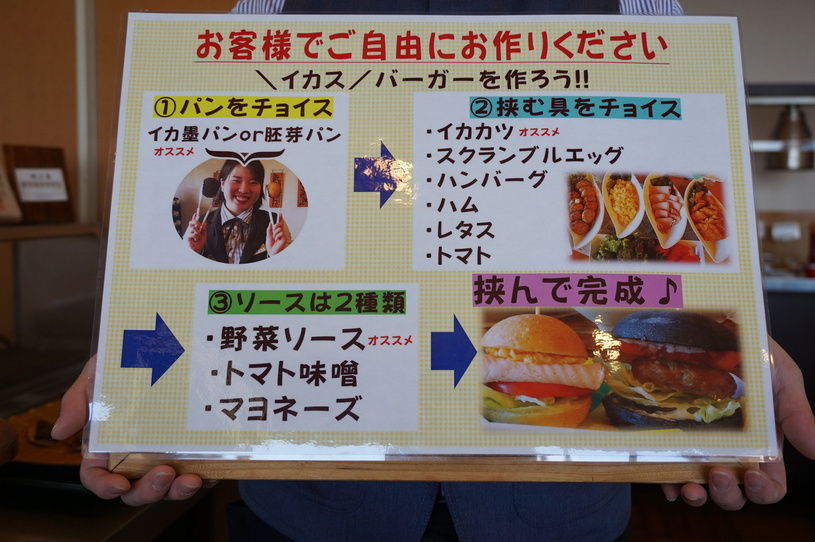 お客様でご自由にお作りください
＼イカス／バーガーを作ろう!!
①パンをチョイス
イカ墨パンor胚芽パン
オススメ
②挟む具をチョイス
・イカカツ オススメ
・スクランブルエッグ
・ハンバーグ
・ハム
・レタス
・トマト
③ソースは2種類
・野菜ソース オススメ
・トマト味噌
・マヨネーズ
挟んで完成♪